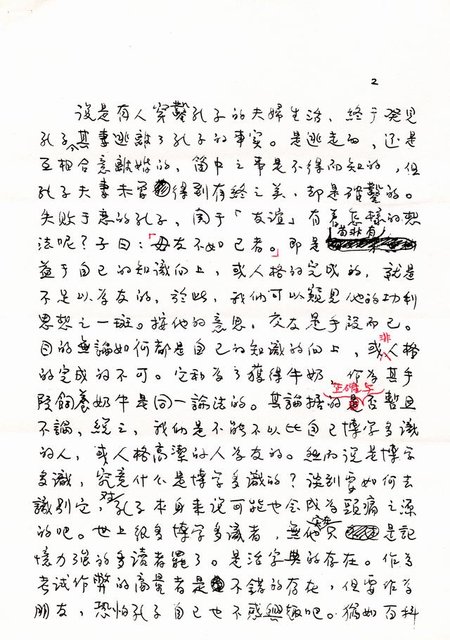 2
說是有人穿鑿孔子的夫婦生活，終于發見
孔子其妻逃離了孔子的事实。是逃走的，还是
互相合意離婚的，箇中之事是不得而知的，但
孔子夫妻未曾得到有終之美，却是確鑿的。
失敗于恋的孔子，関于「友誼」有着怎樣的想
法呢？子曰：「毋友不如己者。」即是苟非有
益于自己的知識向上，或人格的完成的，就是
不足以爲友的，於此，我們可以窺見他的功利
思想之一斑。按他的意思，交友是手段而已。
目的無論如何都是自己的知識的向上，或人格
的完成的非不可。它和為了獲得牛奶，作為其手
段飼養奶牛是同一論法的。其論据的正確与否暫且
不論，総之，我們是不能不以比自己博学多識
的人，或人格高潔的人為友的。然而說是博学
多識，究竟什么是博学多識的？談到要如何去
識別它，对孔子本身来说可能也会成為頭痛之源
的吧。世上很多博学多識者，無他只是記
憶力强的多讀者罷了。是活字典的存在。作為
考試作弊的高覺者是不錯的存在，但要作為
朋友，恐怕孔子自己也不感興趣吧。猶如百科